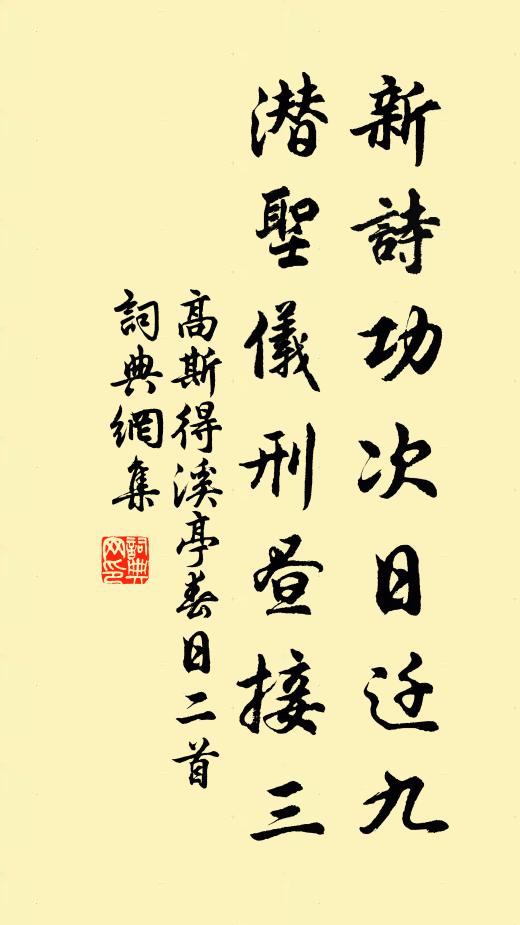 新詩功次日迁九
潜聖儀刑昼接三
高斯得溪亭春日二首
詞典網集
詞典網印